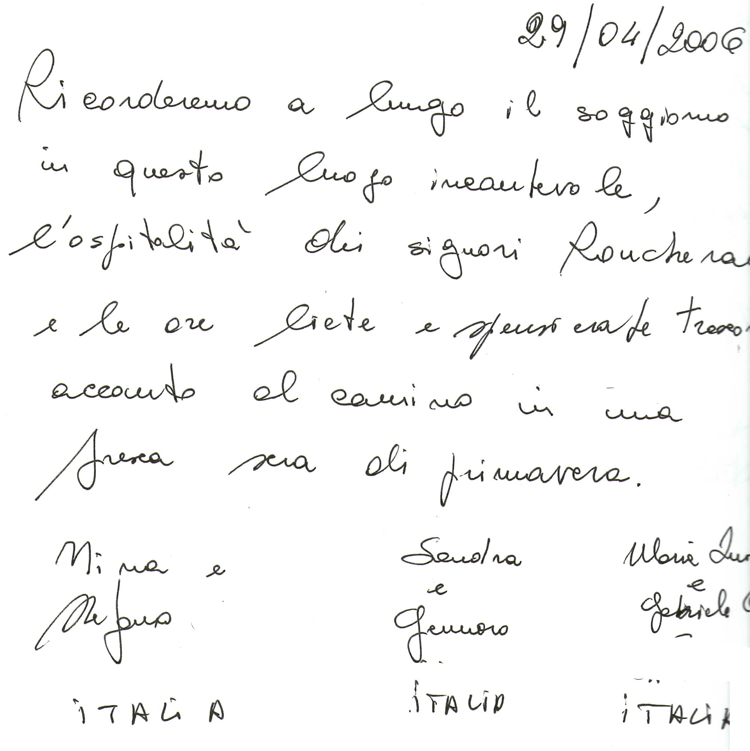 29/04/2006
Ricorderemo a lungo il soggiorno
in questo luogo incantevole,
l'ospitalità dei signori
e le ore liete e spensierate
accanto al camino in una
fresca sera di primavera.
Nina e Sandra Maria
Stefano e Gennaro e Gabriele
ITALIA ITALIA ITALIA